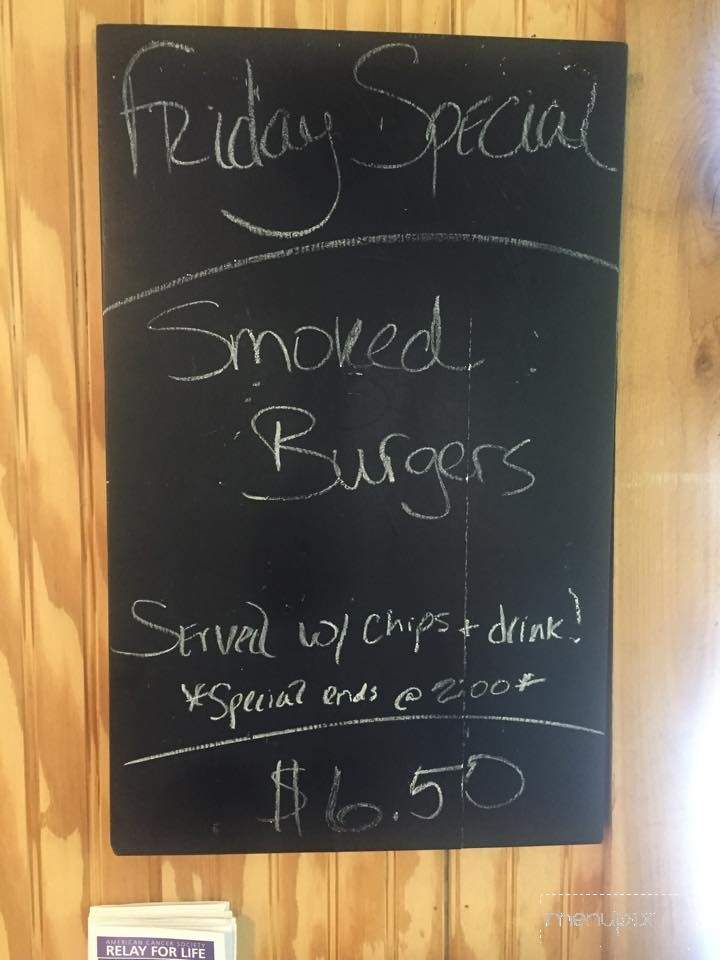 Friday Special
Smoked
Burgers
Served w/ chips + drink!
*Special ends @ 2:00*
$6.50
AMERICAN CANCER SOCIETY
RELAY FOR LIFE
menupix